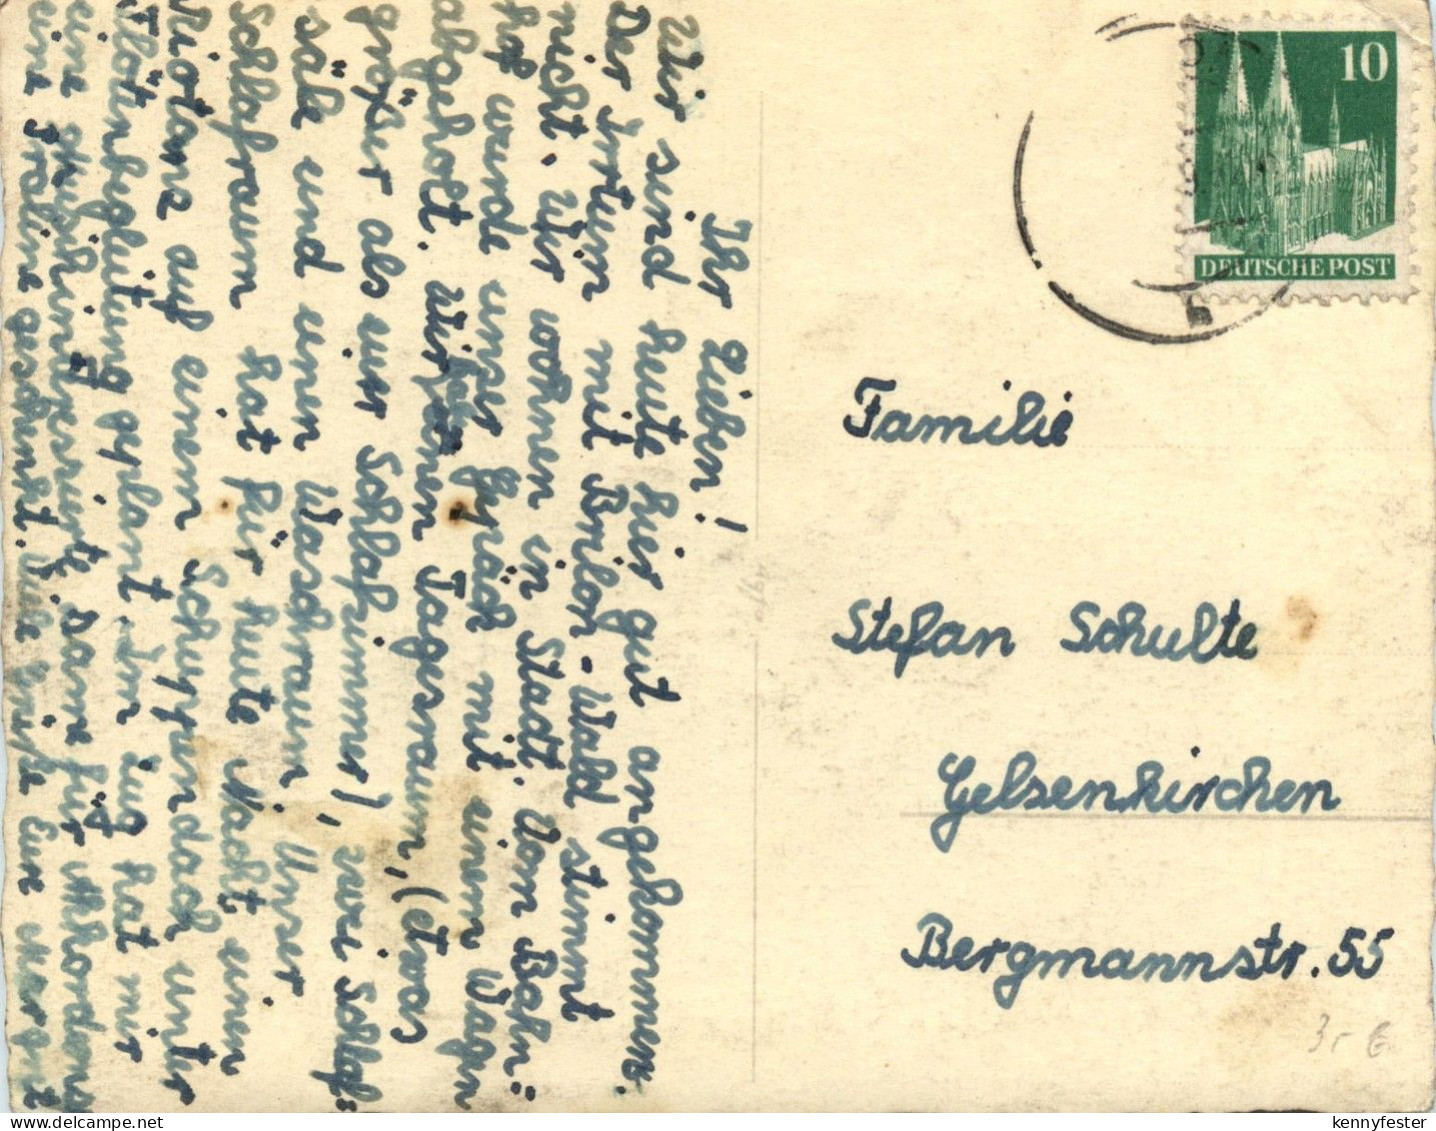 Ihr Lieben!
Wir sind heute hier gut angekommen.
Der Irrtum mit Brilon-Wald stimmt
nicht. Wir wohnen in Stadt. Vom Bahn=
hof wurde unser Gepäck mit einem Wagen
abgeholt. Wir haben einen Tagesraum, (etwas
größer als euer Schlafzimmer), zwei Schlaf=
säle und einen Waschraum. Unser
Schlafraum hat für heute Nacht einen
auf einem Schuppendach unter
Flötenbegleitung geplant. Im Zug hat mir
eine Dame für
eine geschenkt. Viele Grüße Euer
10
DEUTSCHE POST
Familie
Stefan Schulte
Gelsenkirchen
Bergmannstr. 55
3,- €
kennyfester